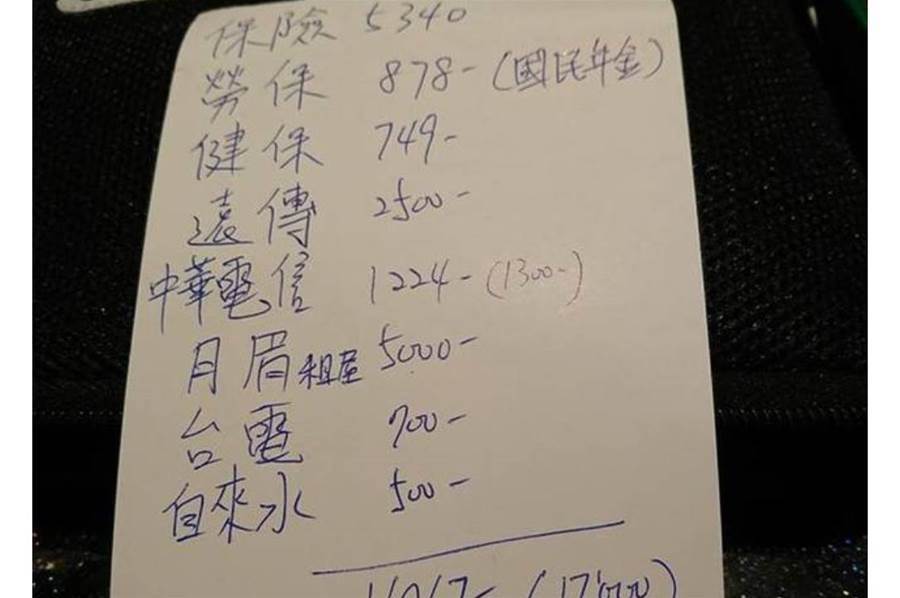 保險 5340
勞保 878-(國民年金)
健保 749-
遠傳 2500-
中華電信 1224-(1300-)
月眉租屋 5000-
台電 700-
自來水 500-
(17000)